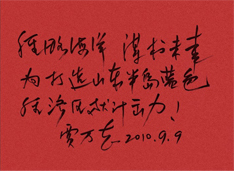 经略海洋 谋划未来
为打造山东半岛蓝色
经济区献计出力！
贾万志 2010.9.9